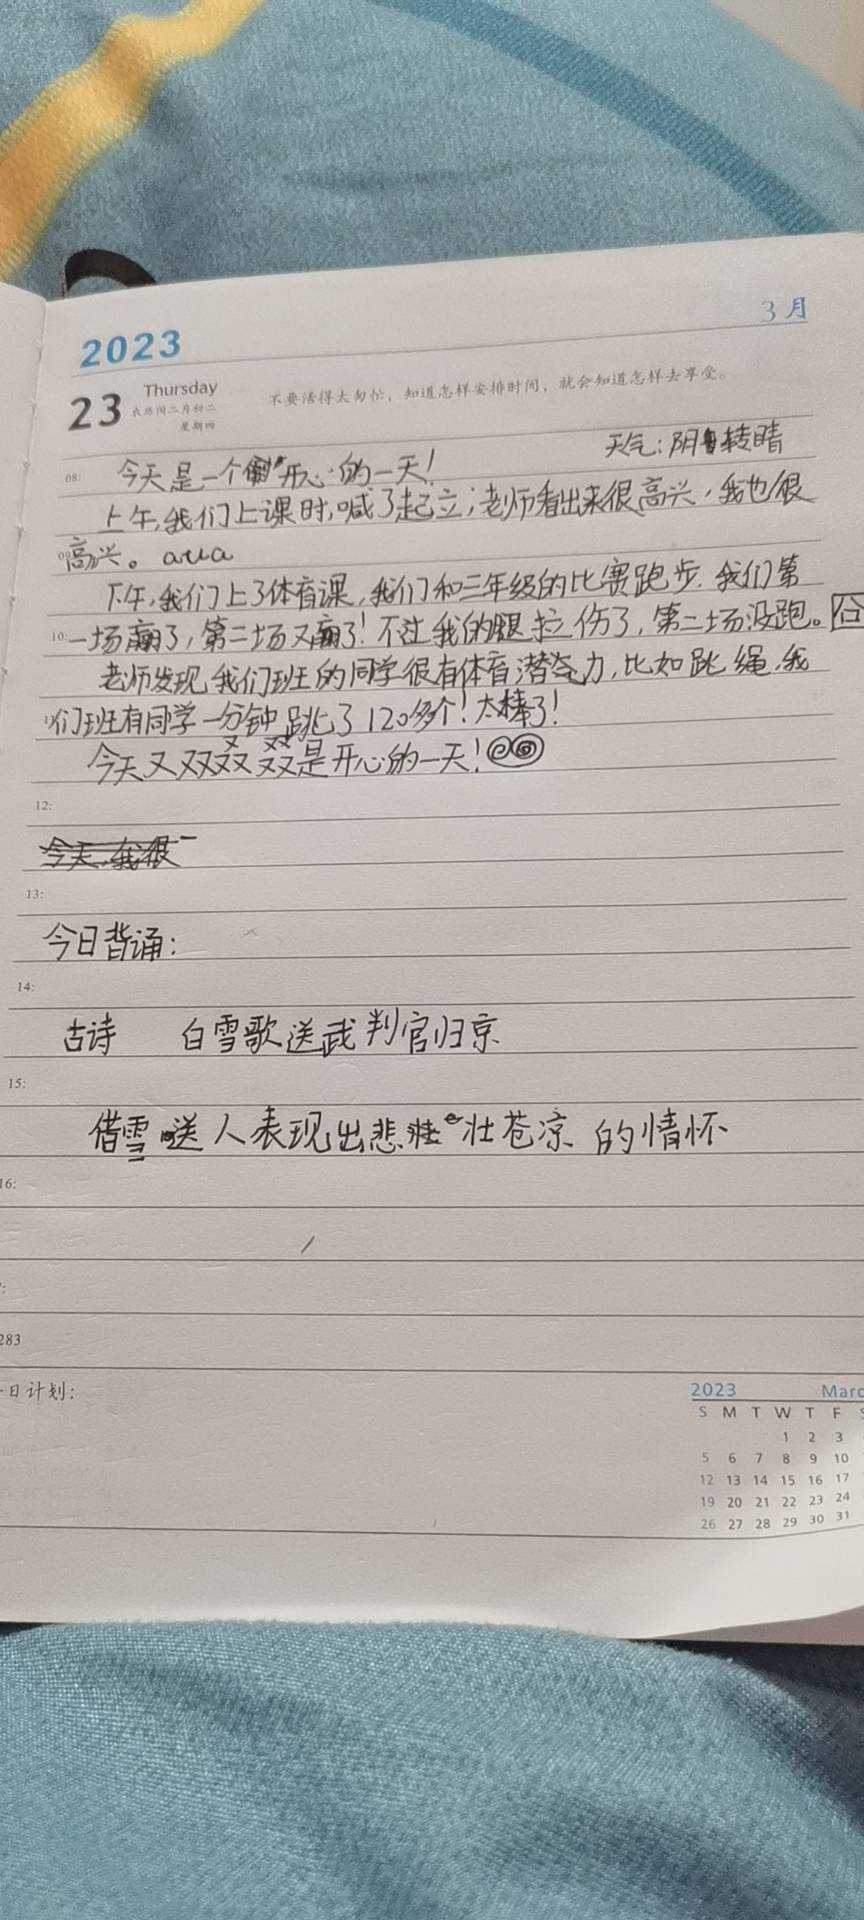 3月
2023
23 Thursday
农历闰二月初二
星期四
不要活得太匆忙，知道怎样安排时间，就会知道怎样去享受。
天气：阴转晴
08:
今天是一个开心的一天！
上午，我们上课时，喊了起立；老师看出来很高兴，我也很
高兴。
下午，我们上了体育课，我们和三年级的比赛跑步，我们第
10:
一场赢了，第二场又赢了！不过我的腿拉伤了，第二场没跑。
老师发现，我们班的同学很有体育潜力，比如跳绳，我
们班有同学一分钟跳了120多个！太棒了！
今天又双叒叕是开心的一天！
12:
今天，我很
13:
今日背诵：
14:
古诗 白雪歌送武判官归京
15:
借雪送人表现出悲壮苍凉的情怀
16:
283
日计划：
2023 Marc
S M T W T F S
1 2 3
5 6 7 8 9 10
12 13 14 15 16 17
19 20 21 22 23 24
26 27 28 29 30 31